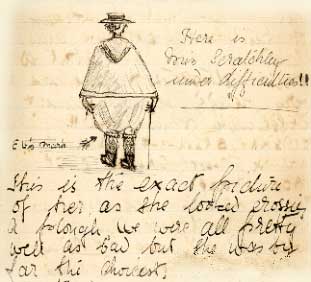 Here is
Miss Scratchley
under difficulties!!
E his mark
This is the exact picture
of her as she looked crossing
a plough we were all pretty
well as bad but she was by
far the choicest,